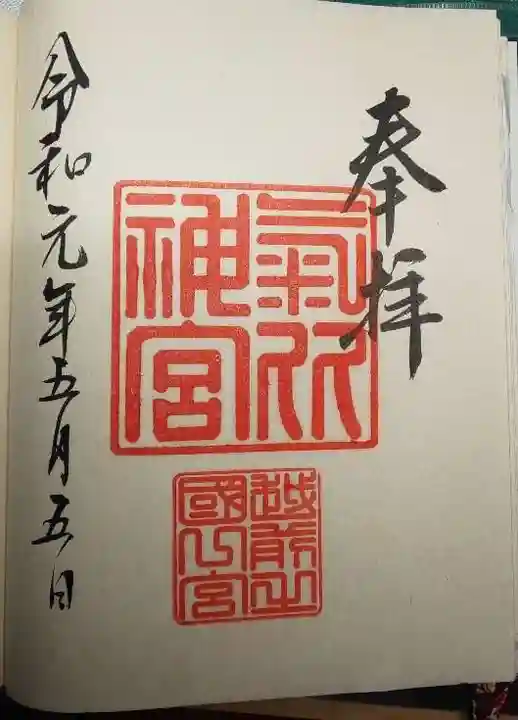 奉拝
氣比
神宮
越前之
國宮
令和元年五月五日